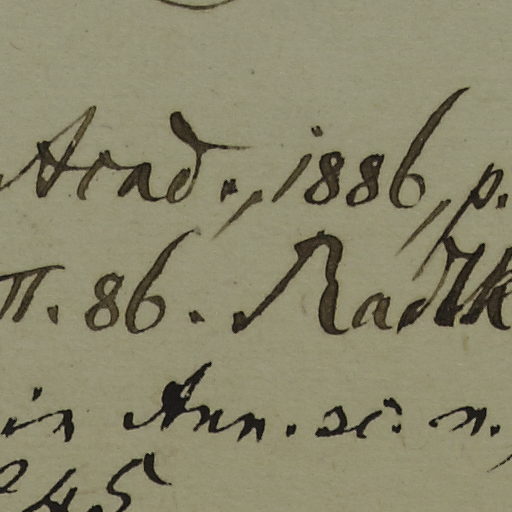 Acad., 1886, p.
π. 86. Radlk
in Ann. sc. n.,
245